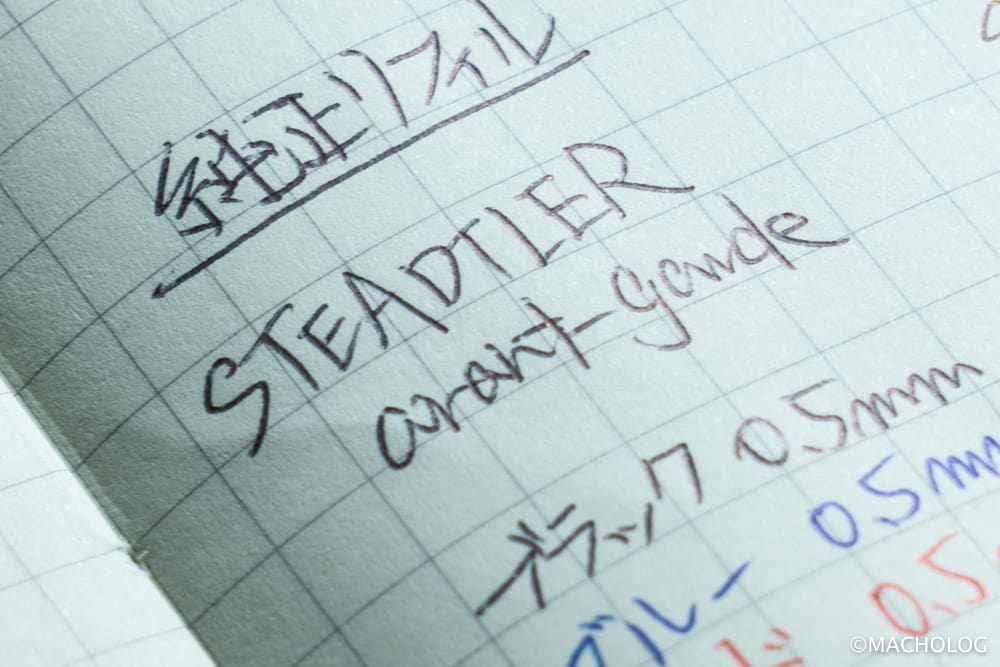 純正リフィル
STEADTLER
avant-garde
ブラック 0.5mm
ブルー 0.5m
ド 0.5
©MACHOLOG